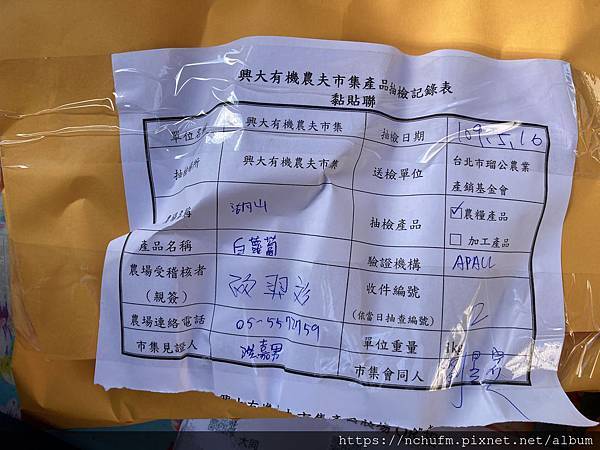 興大有機農夫市集產品抽檢記錄表
黏貼聯
單位名 興大有機農夫市集 抽檢日期 109.5.16
抽檢場所 興大有機農夫市集 送檢單位 台北市瑠公農業
產銷基金會
湖山 抽檢產品 ☑農糧產品
☐加工產品
產品名稱 白蘿蔔 驗證機構 APAU
農場受稽核者
(親簽) 收件編號
(依當日抽查編號) 2
農場連絡電話 05-5572759 單位重量 1k
市集見證人 嘉男 市集會同人
大同
https://nchufm.pixnet.net/album